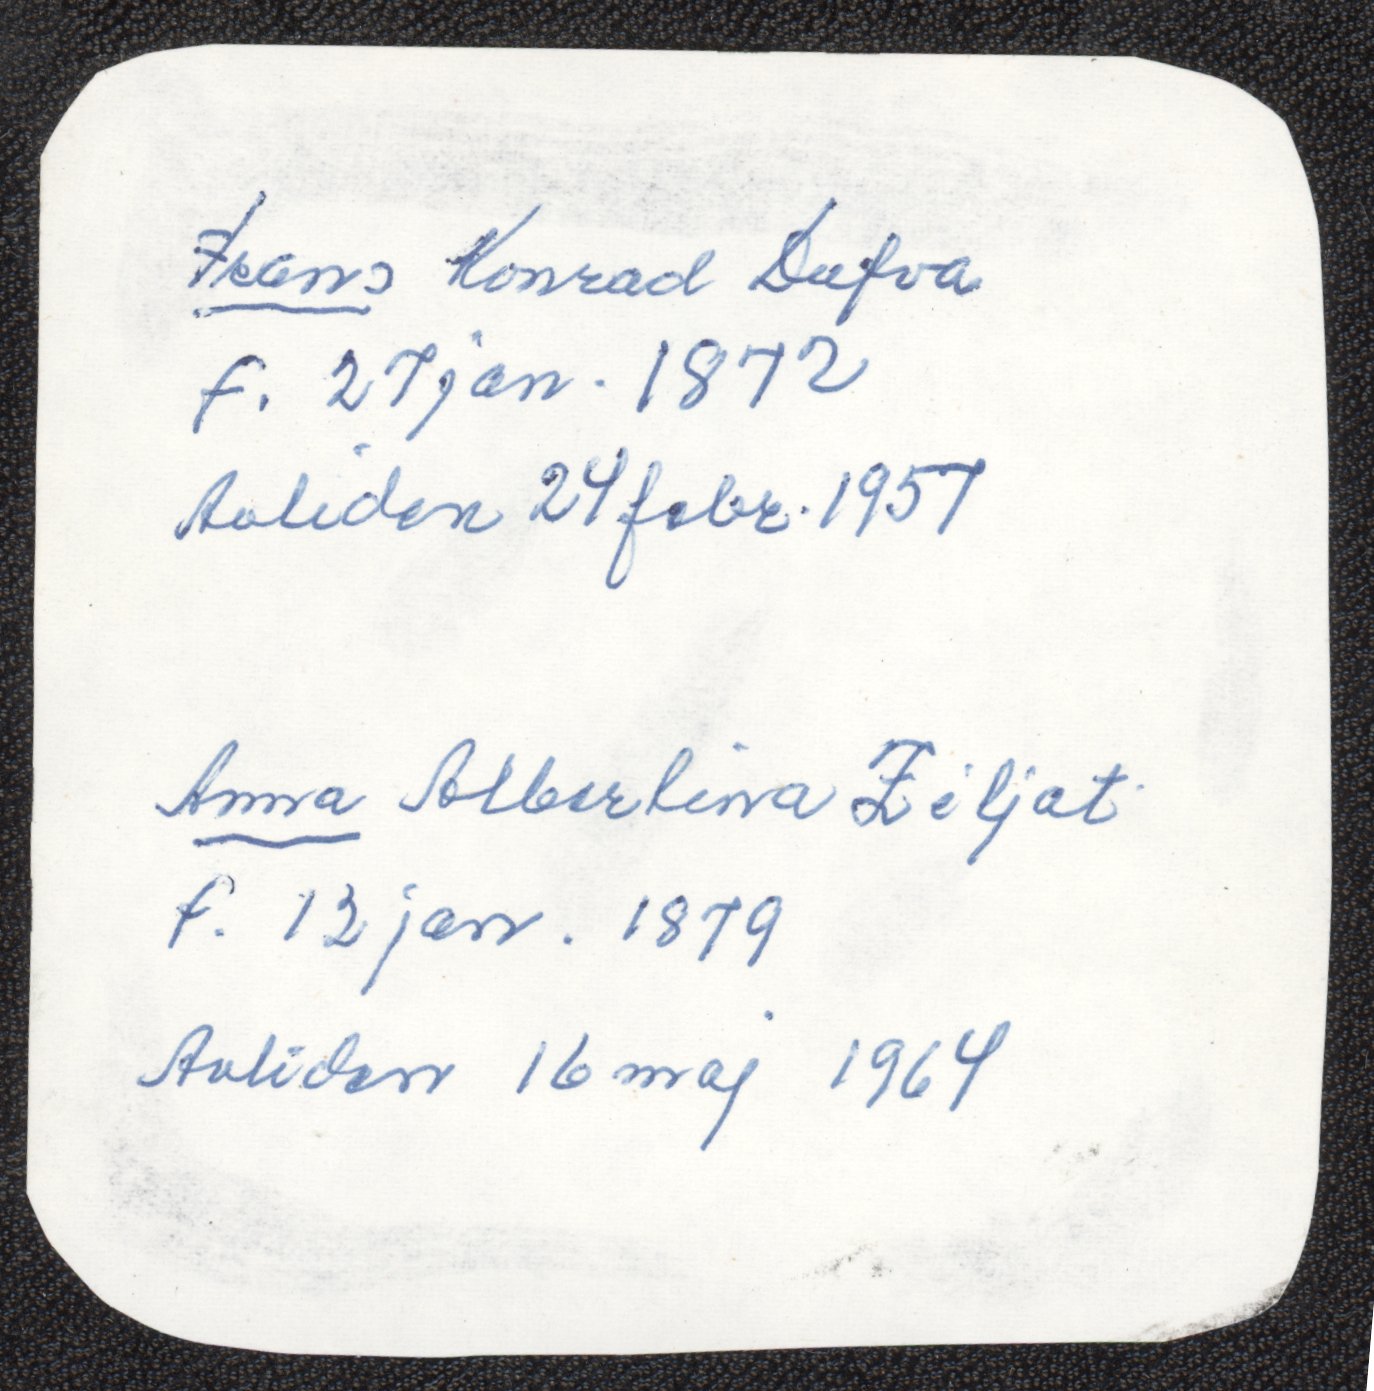 Frans Konrad Dufva
f. 27 jan. 1872
Avliden 24 febr. 1957
Anna Albertina Ziljat
f. 13 jan. 1879
Avliden 16 maj 1964